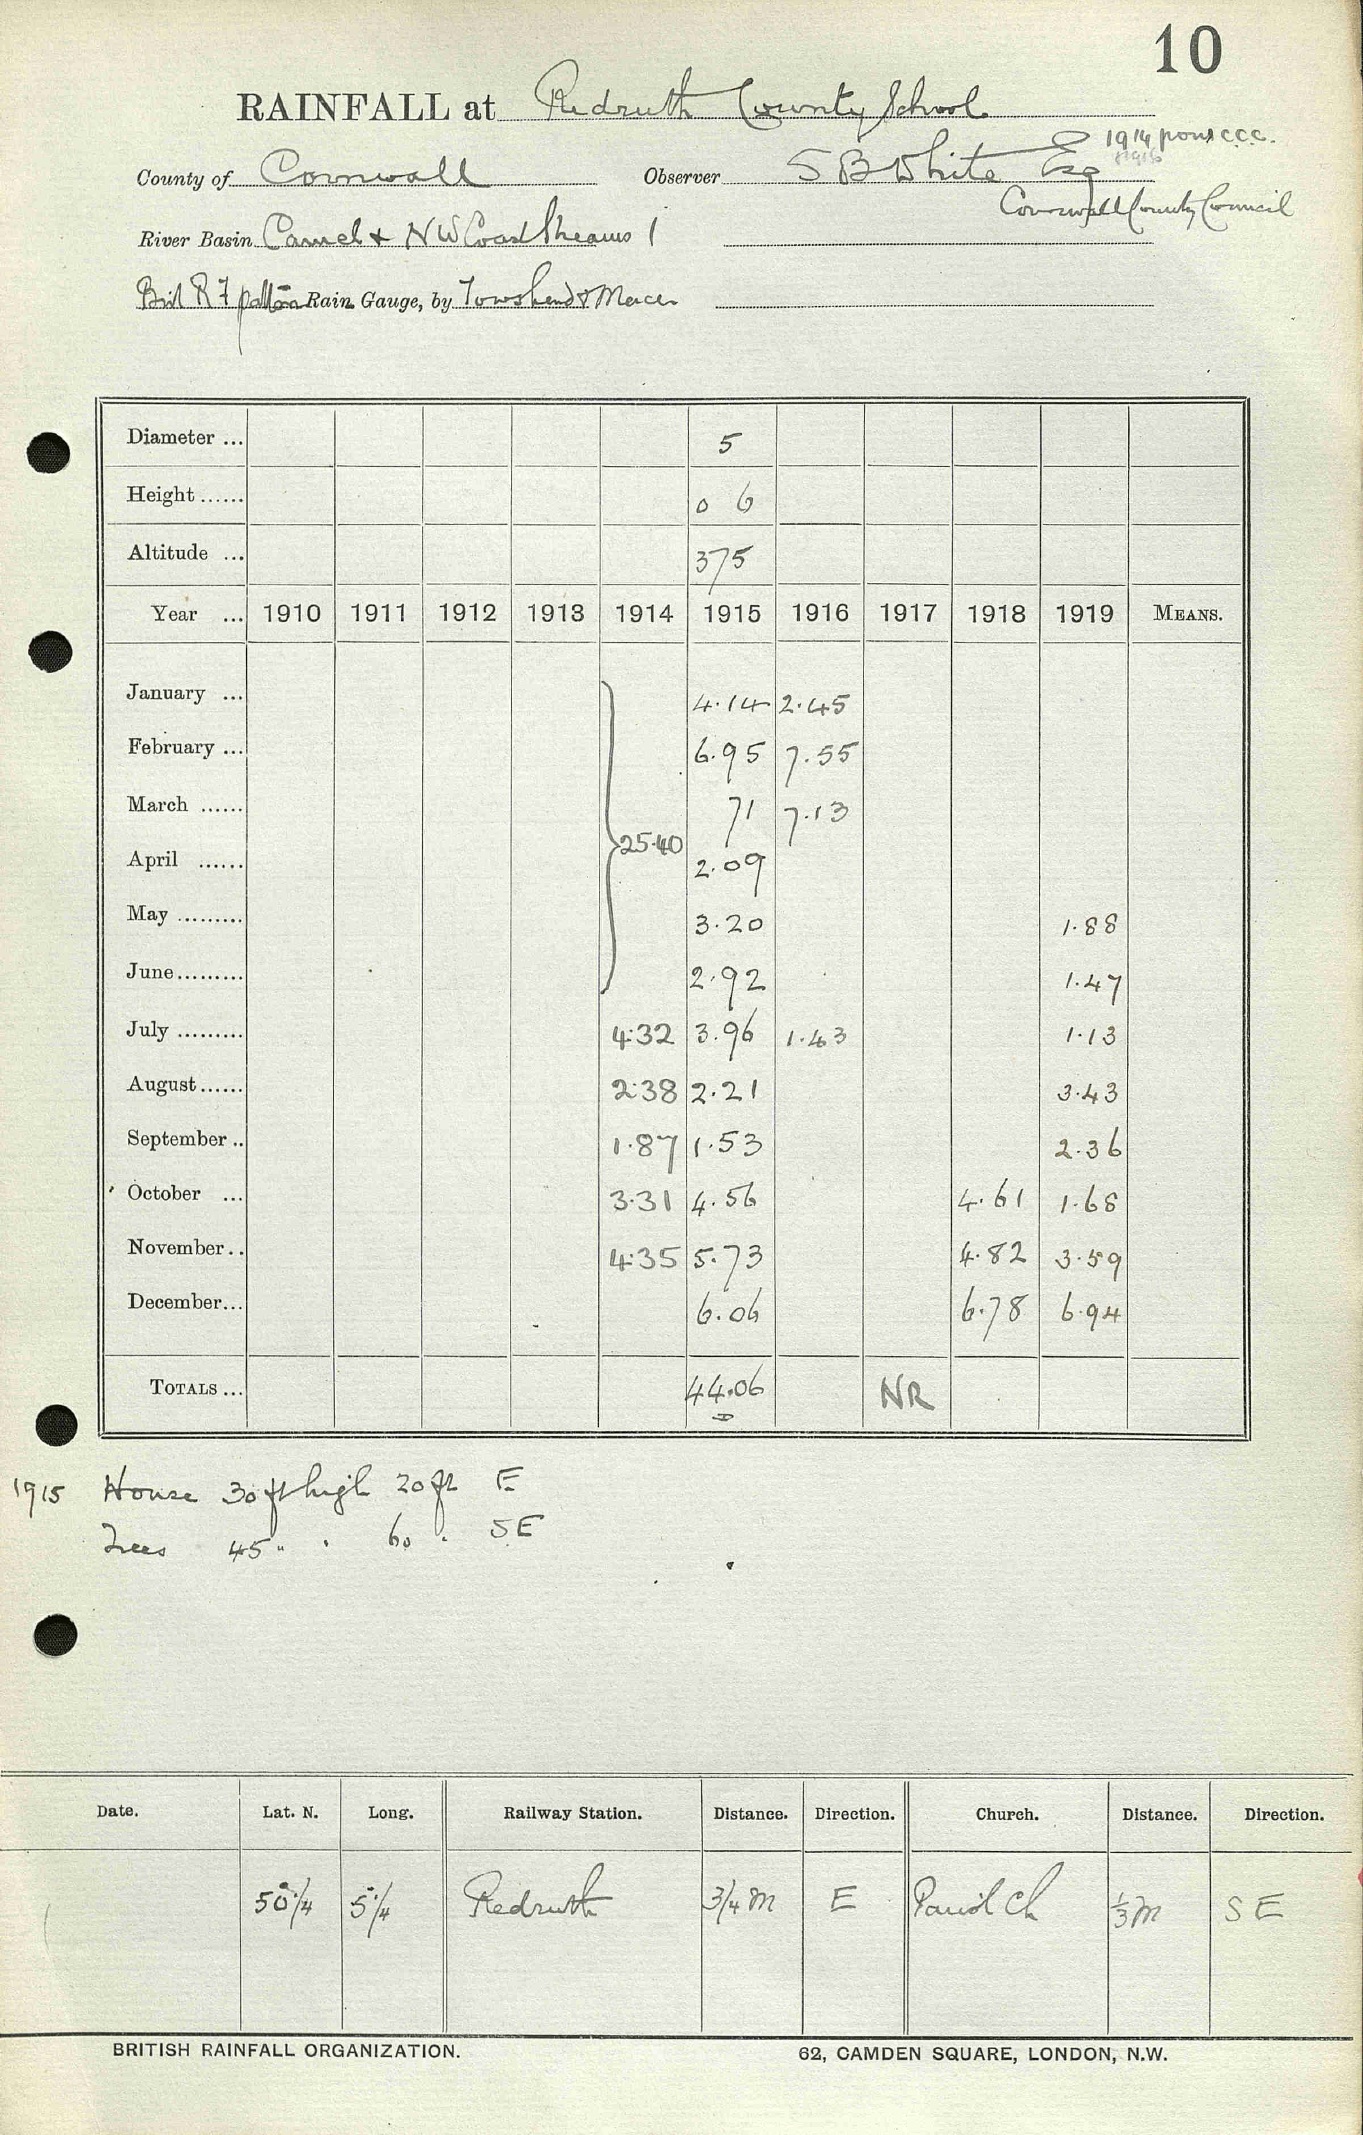 10
RAINFALL at Redruth County School
1914 from C.C.C.
County of Cornwall Observer S B White Esq
Cornwall County Council
River Basin Camel & NW Coast Streams 1
Rain Gauge, by Townshend & Mercer
Diameter ... 5
Height ...... 0 6
Altitude ... 375
Year ... 1910 1911 1912 1913 1914 1915 1916 1917 1918 1919 MEANS.
January ... 4.14 2.45
February ... 6.95 7.55
March ...... 71 7.13
25.40
April ...... 2.09
May ......... 3.20 1.88
June ......... 2.92 1.47
July ......... 4.32 3.96 1.43 1.13
August ...... 2.38 2.21 3.43
September .. 1.87 1.53 2.36
October ... 3.31 4.56 4.61 1.68
November .. 4.35 5.73 4.82 3.59
December ... 6.06 6.78 6.94
TOTALS ... 44.06 NR
1915 House 30 ft high 20 ft E
Trees 45 " " 60 " SE
Date. Lat. N. Long. Railway Station. Distance. Direction. Church. Distance. Direction.
50°1/4 5°1/4 Redruth 3/4 M E Parish Ch 1/3 M S E
BRITISH RAINFALL ORGANIZATION. 62, CAMDEN SQUARE, LONDON, N.W.